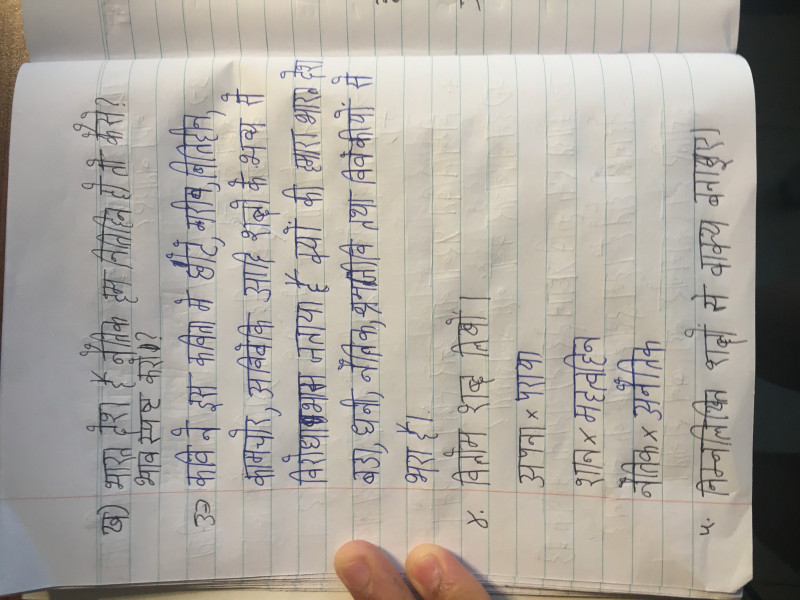 ख) भारत देश है नैतिक हम नितिहिन हो तो कैसे?
भाव स्पष्ट करो।?
उ⇒ कवि ने इस कविता में छोटे, गरीब, नितिहीन,
कामचोर, अविवेकि आदि शब्दों के भाव से
विरोधाभास बताया हैं क्यों की हमारा भारत देश
बडा, धनी, नैतिक, श्रमजीवि तथा विवेकीयों से
भरा हैं।
४. विलोम शब्द लिखों।
अपना × पराया
शान × महत्वहिन
नैतिक × अनैतिक
५. निम्नलिकित शब्दों से वाक्य बनाइए।